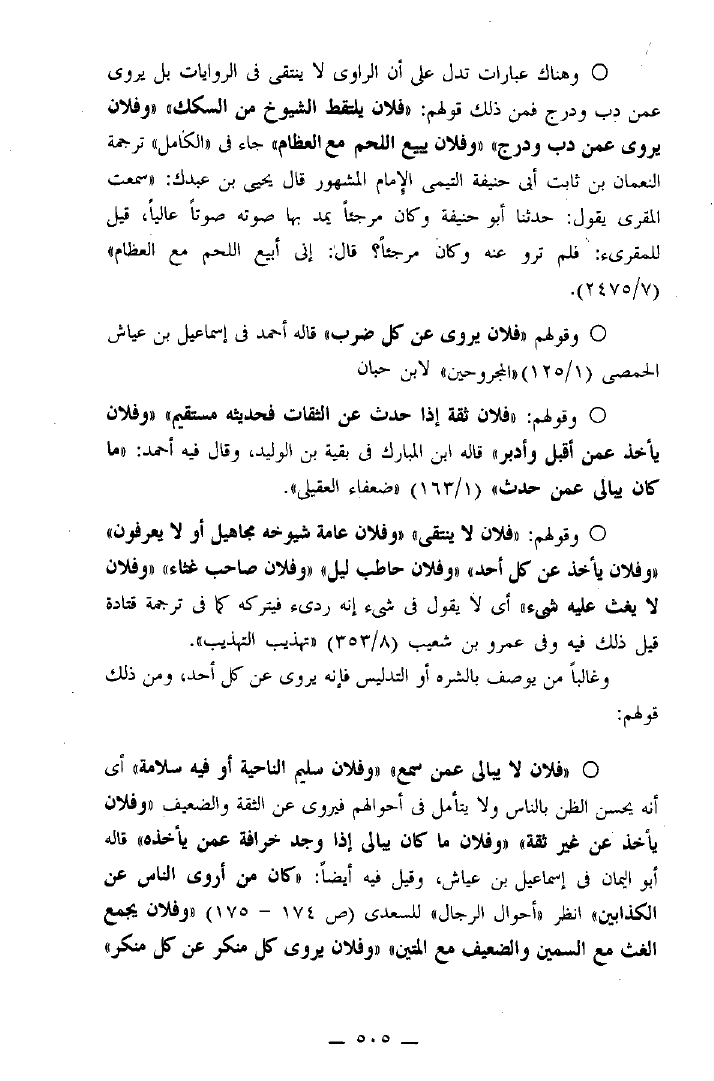 ○ وهناك عبارات تدل على أن الراوى لا ينتقى فى الروايات بل يروى
عمن دب ودرج فمن ذلك قولهم: «فلان يلتقط الشيوخ من السكك» «وفلان
يروى عمن دب ودرج» «وفلان يبيع اللحم مع العظام» جاء فى «الكامل» ترجمة
النعمان بن ثابت أبى حنيفة التيمى الإمام المشهور قال يحيى بن عبدك: «سمعت
المقرى يقول: حدثنا أبو حنيفة وكان مرجئاً يمد بها صوته صوتاً عالياً، قيل
للمقرىء: فلم ترو عنه وكان مرجئاً؟ قال: إنى أبيع اللحم مع العظام»
(٢٤٧٥/٧).
○ وقولهم «فلان يروى عن كل ضرب» قاله أحمد فى إسماعيل بن عياش
الحمصى (١٢٥/١)«المجروحين» لابن حبان
○ وقولهم: «فلان ثقة إذا حدث عن الثقات فحديثه مستقيم» «وفلان
يأخذ عمن أقبل وأدبر» قاله ابن المبارك فى بقية بن الوليد، وقال فيه أحمد: «ما
كان يبالى عمن حدث» (١٦٣/١) «ضعفاء العقيلى».
○ وقولهم: «فلان لا ينتقى» «وفلان عامة شيوخه مجاهيل أو لا يعرفون»
«وفلان يأخذ عن كل أحد» «وفلان حاطب ليل» «وفلان صاحب غثاء» «وفلان
لا يغث عليه شىء» أى لا يقول فى شىء إنه ردىء فيتركه كما فى ترجمة قتادة
قيل ذلك فيه وفى عمرو بن شعيب (٣٥٣/٨) «تهذيب التهذيب».
وغالباً من يوصف بالشره أو التدليس فإنه يروى عن كل أحد، ومن ذلك
قولهم:
○ «فلان لا يبالى عمن سمع» «وفلان سليم الناحية أو فيه سلامة» أى
أنه يحسن الظن بالناس ولا يتأمل فى أحوالهم فيروى عن الثقة والضعيف «وفلان
يأخذ عن غير ثقة» «وفلان ما كان يبالى إذا وجد خرافة عمن يأخذه» قاله
أبو اليمان فى إسماعيل بن عياش، وقيل فيه أيضاً: «كان من أروى الناس عن
الكذابين» انظر «أحوال الرجال» للسعدى (ص ١٧٤ – ١٧٥) «وفلان يجمع
الغث مع السمين والضعيف مع المتين» «وفلان يروى كل منكر عن كل منكر»
— ٥٠٥ —